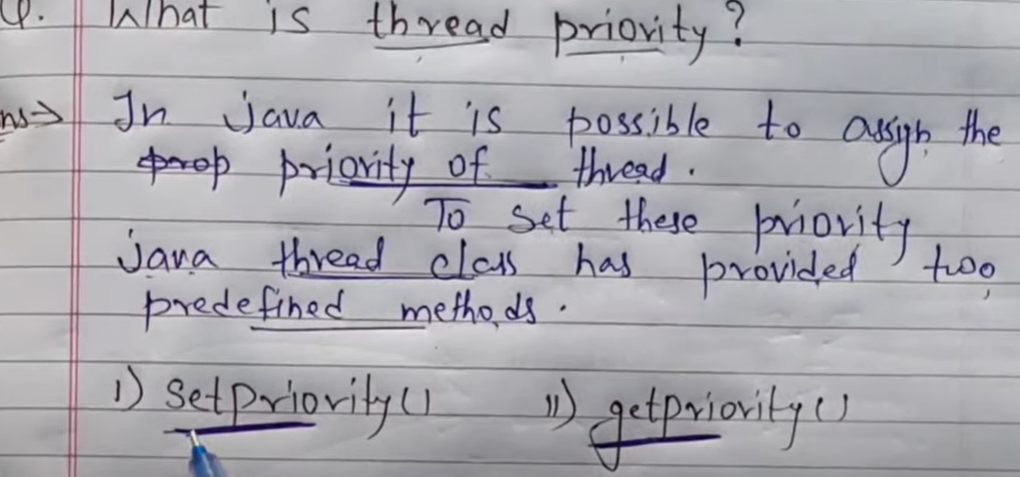 Q. What is thread priority?
ns→ In java it is possible to assign the
prop priority of thread.
To set these priority
java thread class has provided two
predefined methods.
i) setpriority() ii) getpriority()